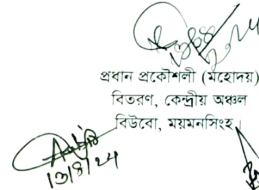 প্রধান প্রকৌশলী (মহোদয়)
বিতরণ, কেন্দ্রীয় অঞ্চল
বিউবো, ময়মনসিংহ।
13/8/24